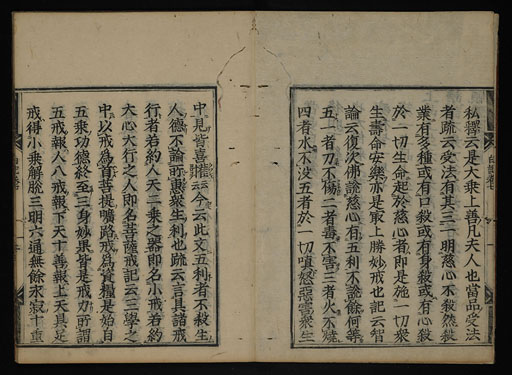 私釋云是大乘上善凡夫人也當品受法
者疏云受法有其三一明慈心不殺然殺
業有多種或有口殺或有身殺或有心殺
於一切生命起於慈心者即是施一切衆
生壽命安樂亦是最上勝妙戒也記云智
論云復次佛說慈心有五利不說餘何等
五一者刀不傷二者毒不害三者火不燒
四者水不没五者於一切嗔怒惡害衆生
中見皆喜云云今云此文五利者不殺生
人德不論所惠衆生利也疏云言具諸戒
行者若約人天二乘之器即名小戒若約
大心大行之人即名菩薩戒記云三學之
中以戒為首菩提曠路戒為資糧是始自
五乘功德終至三身妙果皆是戒力所謂
五戒報人八戒報下天十善報上天具足
戒得小乘解脫三明六通無餘永寂十重